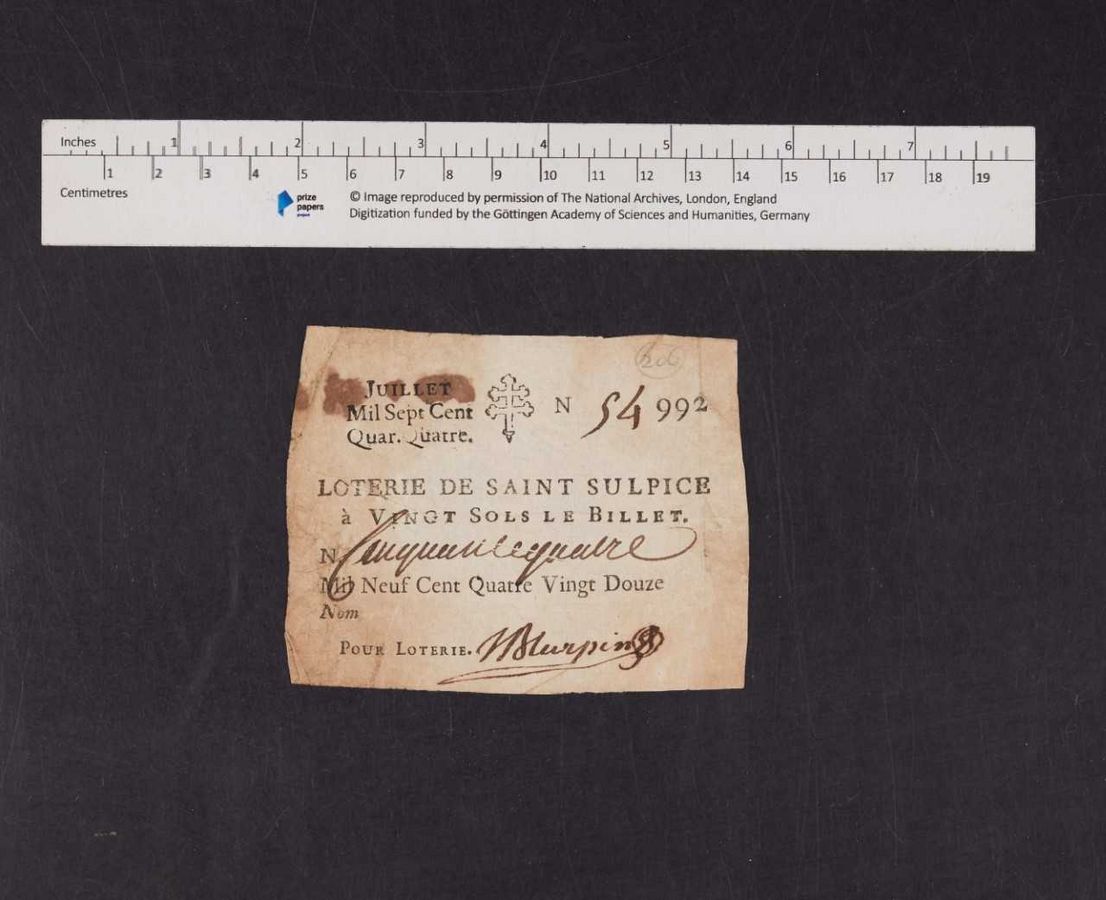 Inches 1 2 3 4 5 6 7
1 2 3 4 5 6 7 8 9 10 11 12 13 14 15 16 17 18 19
Centimetres
prize
papers
project
© Image reproduced by permission of The National Archives, London, England
Digitization funded by the Göttingen Academy of Sciences and Humanities, Germany
206
JUILLET
Mil Sept Cent
Quar. Quatre.
N 54 992
LOTERIE DE SAINT SULPICE
à VINGT SOLS LE BILLET.
N Cinquante quatre
Mil Neuf Cent Quatre Vingt Douze
Nom
POUR LOTERIE.